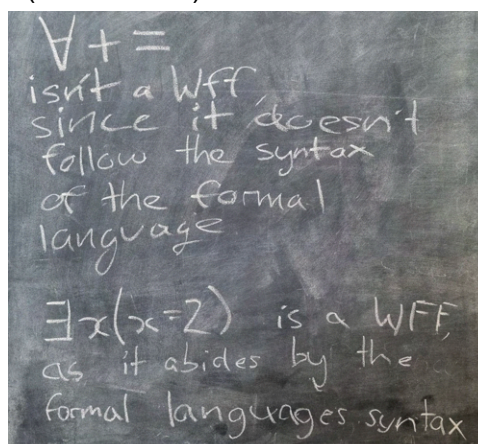 ∀ + =
isn't a Wff
since it doesn't
follow the syntax
of the formal
language
∃x(x=2) is a WFF,
as it abides by the
formal languages syntax